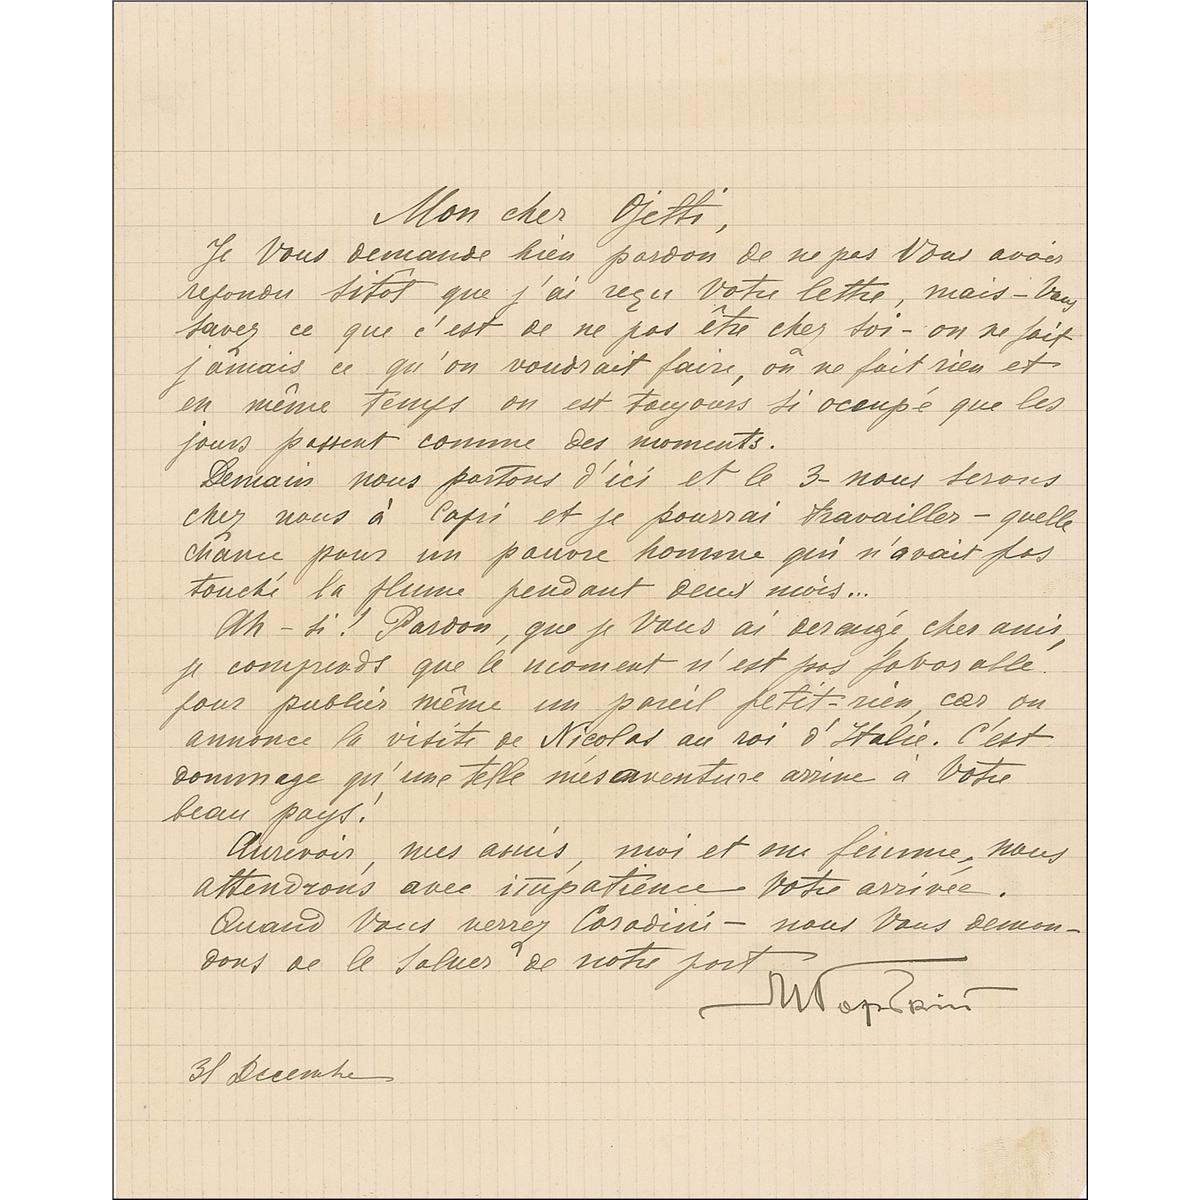 Mon cher Ojetti,
Je Vous demande bien pardon de ne pas Vous avoir
repondu sitôt que j'ai reçu Votre lettre, mais – Vous
savez ce que c'est de ne pas être chez soi – on ne fait
jamais ce qu'on voudrait faire, on ne fait rien et
en même temps on est toujours si occupé que les
jours passent comme des moments.
Demain nous partons d'ici et le 3 – nous serons
chez nous à Capri et je pourrai travailler – quelle
chance pour un pauvre homme qui n'avait pas
touché la plume pendant deux mois...
Ah – si! Pardon, que je Vous ai derangé, cher ami,
je comprends que le moment n'est pas favorable
pour publier même un pareil petit-rien, car on
annonce la visite de Nicolas au roi d'Italie. C'est
dommage qu'une telle mésaventure arrive à Votre
beau pays!
Aurevoir, mes amis, moi et ma femme, nous
attendrons avec impatience Votre arrivée.
Quand Vous verrez Coradini – nous Vous deman-
dons de le saluer de notre part
М Горький
31 Decembre